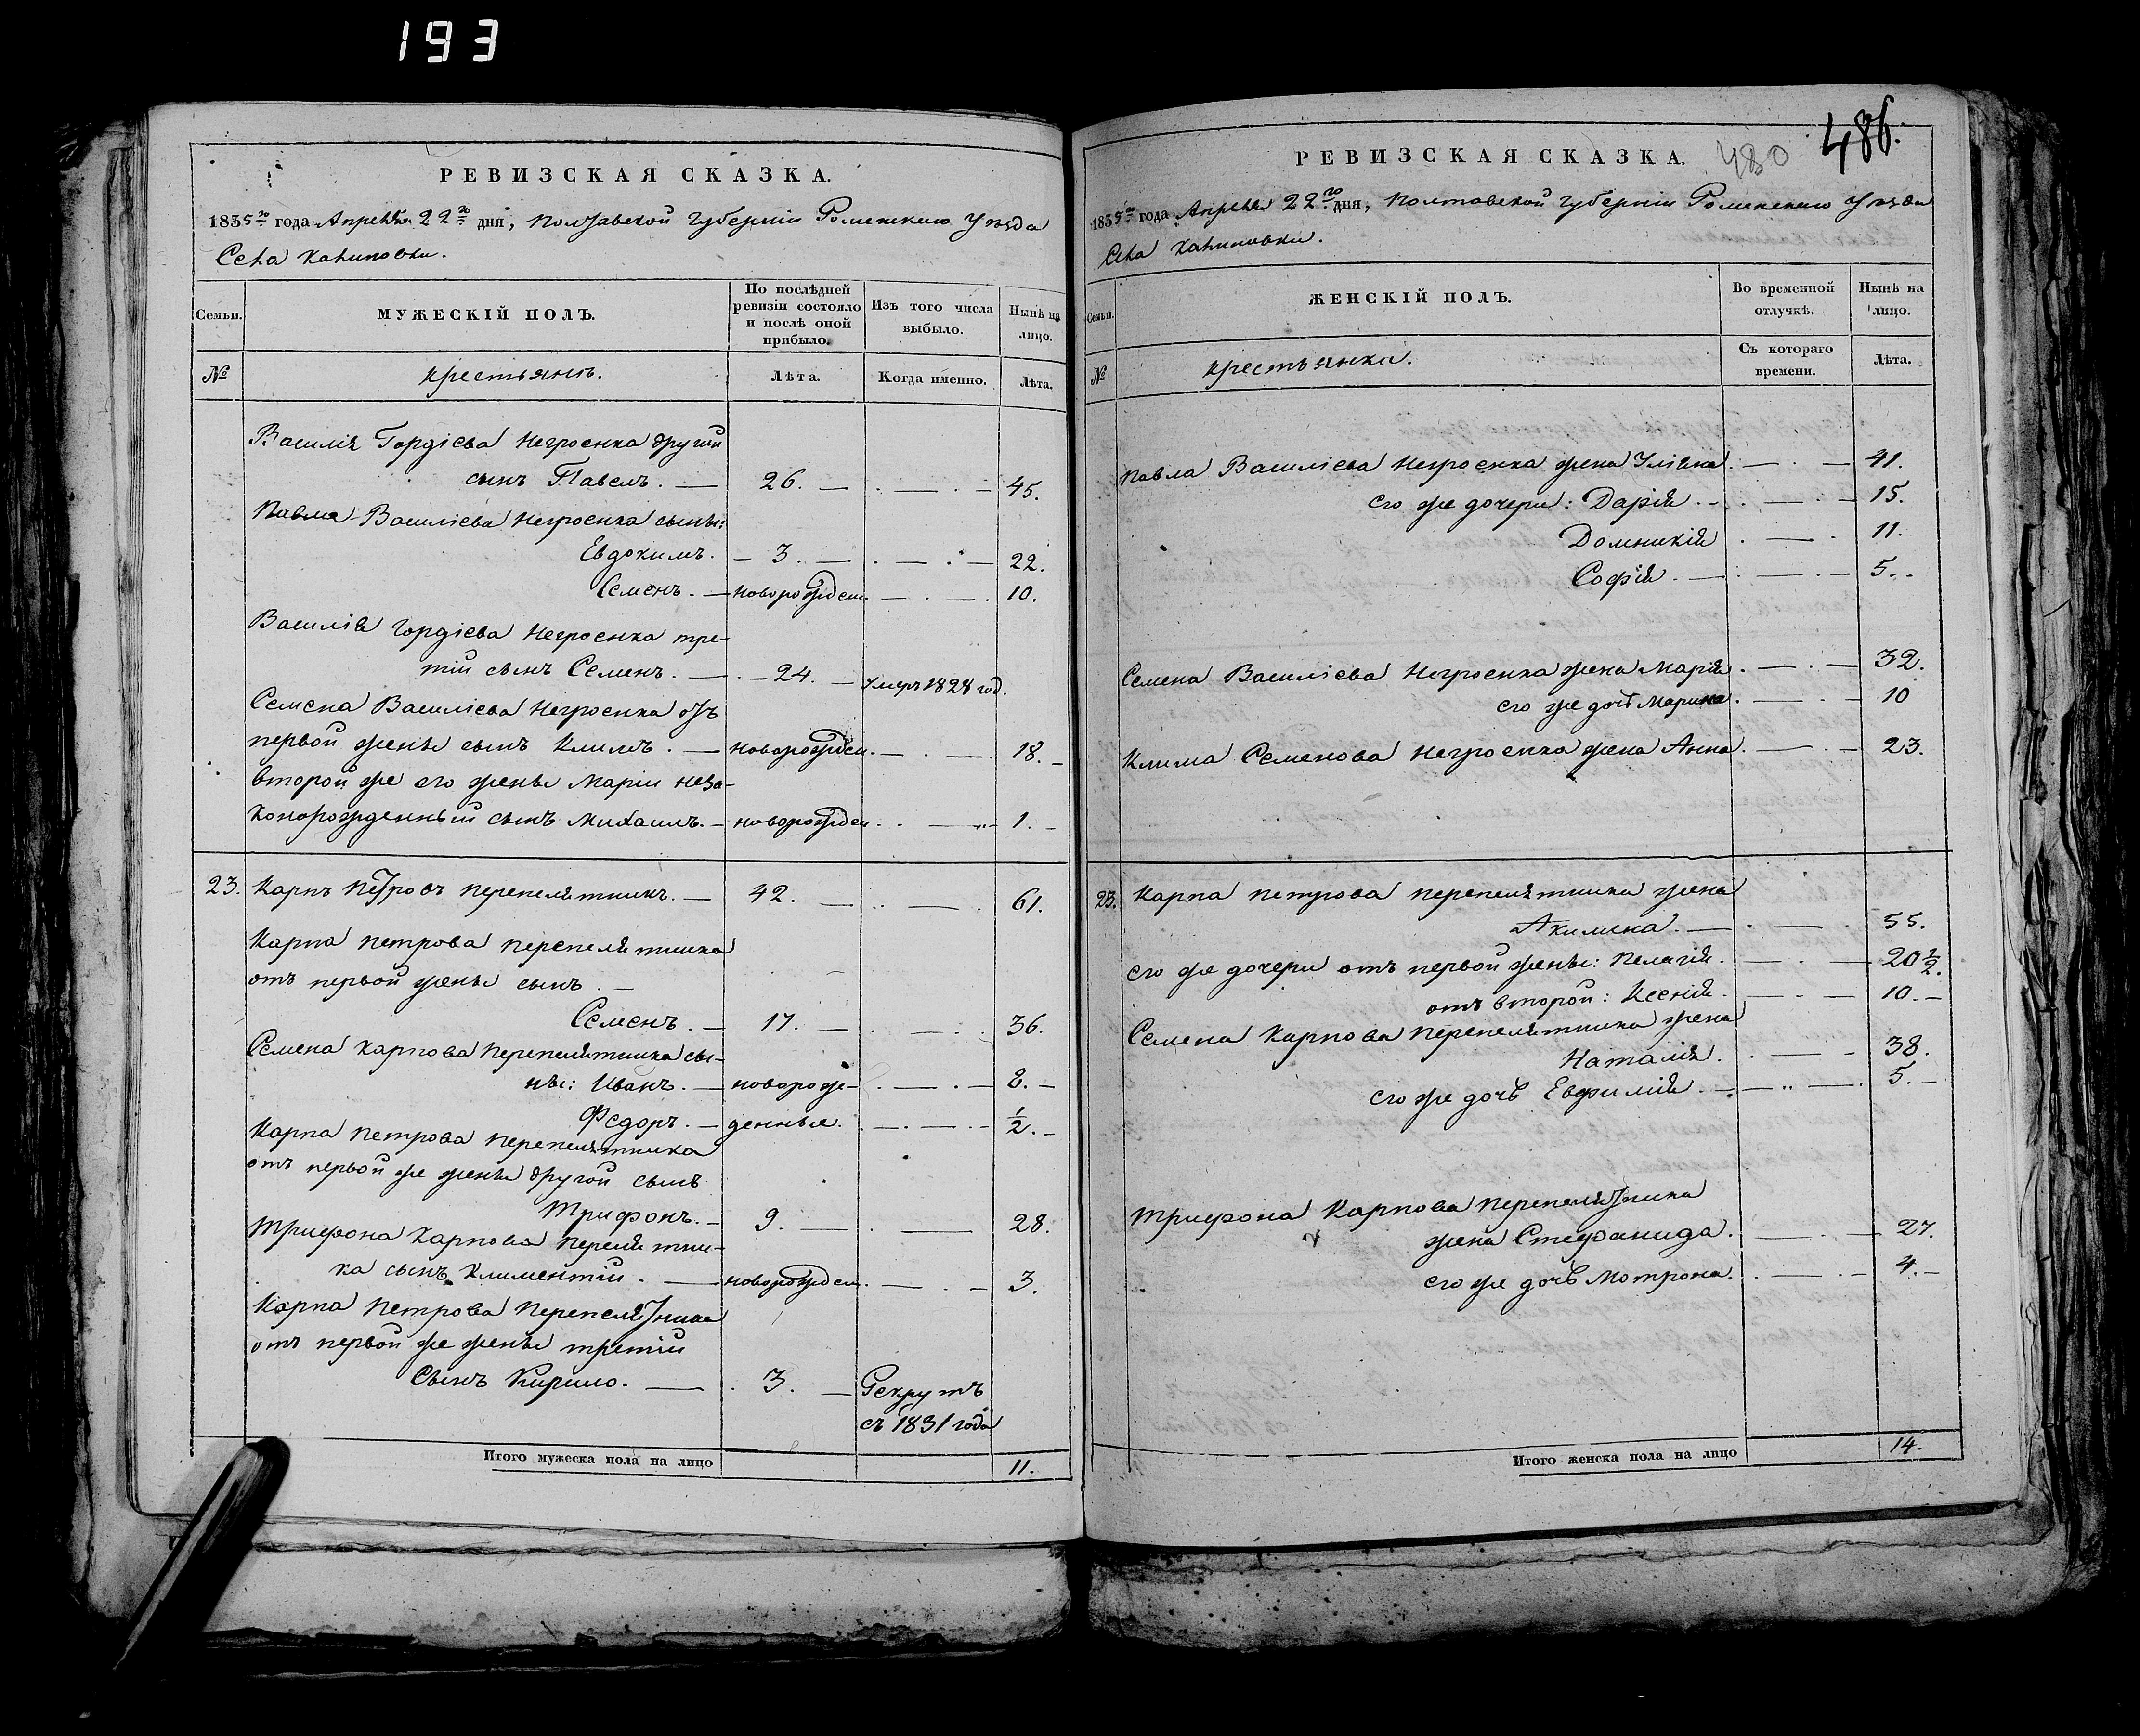 193
РЕВИЗСКАЯ СКАЗКА.
1835го года Апреля 22го дня, Полтавской Губерніи Роменскаго Уезда
Села Калиновки.
Семьи.
МУЖЕСКІЙ ПОЛЪ.
По послѣдней ревизіи состояло и послѣ оной прибыло.
Изъ того числа выбыло.
Нынѣ на лицо.
№
крестьянъ.
Лѣта.
Когда именно.
Лѣта.
Василія Гордіева Негроенка другій
сынъ Павелъ. — 26. — 45.
Павла Василіева Негроенка сыны:
Евдокимъ. — 3. — 22.
Семенъ. — новорожден. — 10.
Василія Гордіева Негроенка тре-
тій сынъ Семенъ. — 24. — Умеръ 1828 год.
Семена Василіева Негроенка отъ
первой жены сынъ Климъ. — новорожден. — 18. —
второй же его жены Маріи неза-
конорожденный сынъ Михаилъ. — новорожден. — 1. —
23. Карпъ Петровъ Перепелятникъ. — 42. — 61.
Карпа Петрова Перепелятника
отъ первой жены сынъ. —
Семенъ. — 17. — 36.
Семена Карпова Перепелятника сы-
ны: Иванъ. — новорож- — 2. —
Федоръ. — денные. — 1/2. —
Карпа Петрова Перепелятника
отъ первой же жены другой сынъ
Трифонъ. — 9. — 28.
Трифона Карпова Перепелятни-
ка сынъ Климентій. — новорожден. — 3.
Карпа Петрова Перепелятника
отъ первой же жены третій
Сынъ Кирило. — 3. — Рекрутъ
съ 1831 года
Итого мужеска пола на лицо 11.
РЕВИЗСКАЯ СКАЗКА.
480
486.
1835го года Апреля 22го дня, Полтавской Губерніи Роменскаго Уезда
Села Калиновки.
Семьи.
ЖЕНСКІЙ ПОЛЪ.
Во временной отлучкѣ.
Нынѣ на лицо.
№
крестьянки.
Съ котораго времени.
Лѣта.
Павла Василіева Негроенка жена Уліяна. — 41.
его же дочери: Дарія. — 15.
Домникія — 11.
Софія. — 5. -
Семена Василіева Негроенка жена Марія. — 32.
его же дочь Марина. — 10
Клима Семенова Негроенка жена Анна. — 23.
23. Карпа Петрова Перепелятника жена
Акилина. — 55.
его же дочери отъ первой жены: Пелагія. — 20 1/2.
отъ второй: Ксенія. — 10. —
Семена Карпова Перепелятника жена
Наталія. — 38.
его же дочь Евфимія. — 5. —
Трифона Карпова Перепелятника
жена Стефанида. — 27.
его же дочь Мотрона. — 4. —
Итого женска пола на лицо 14.